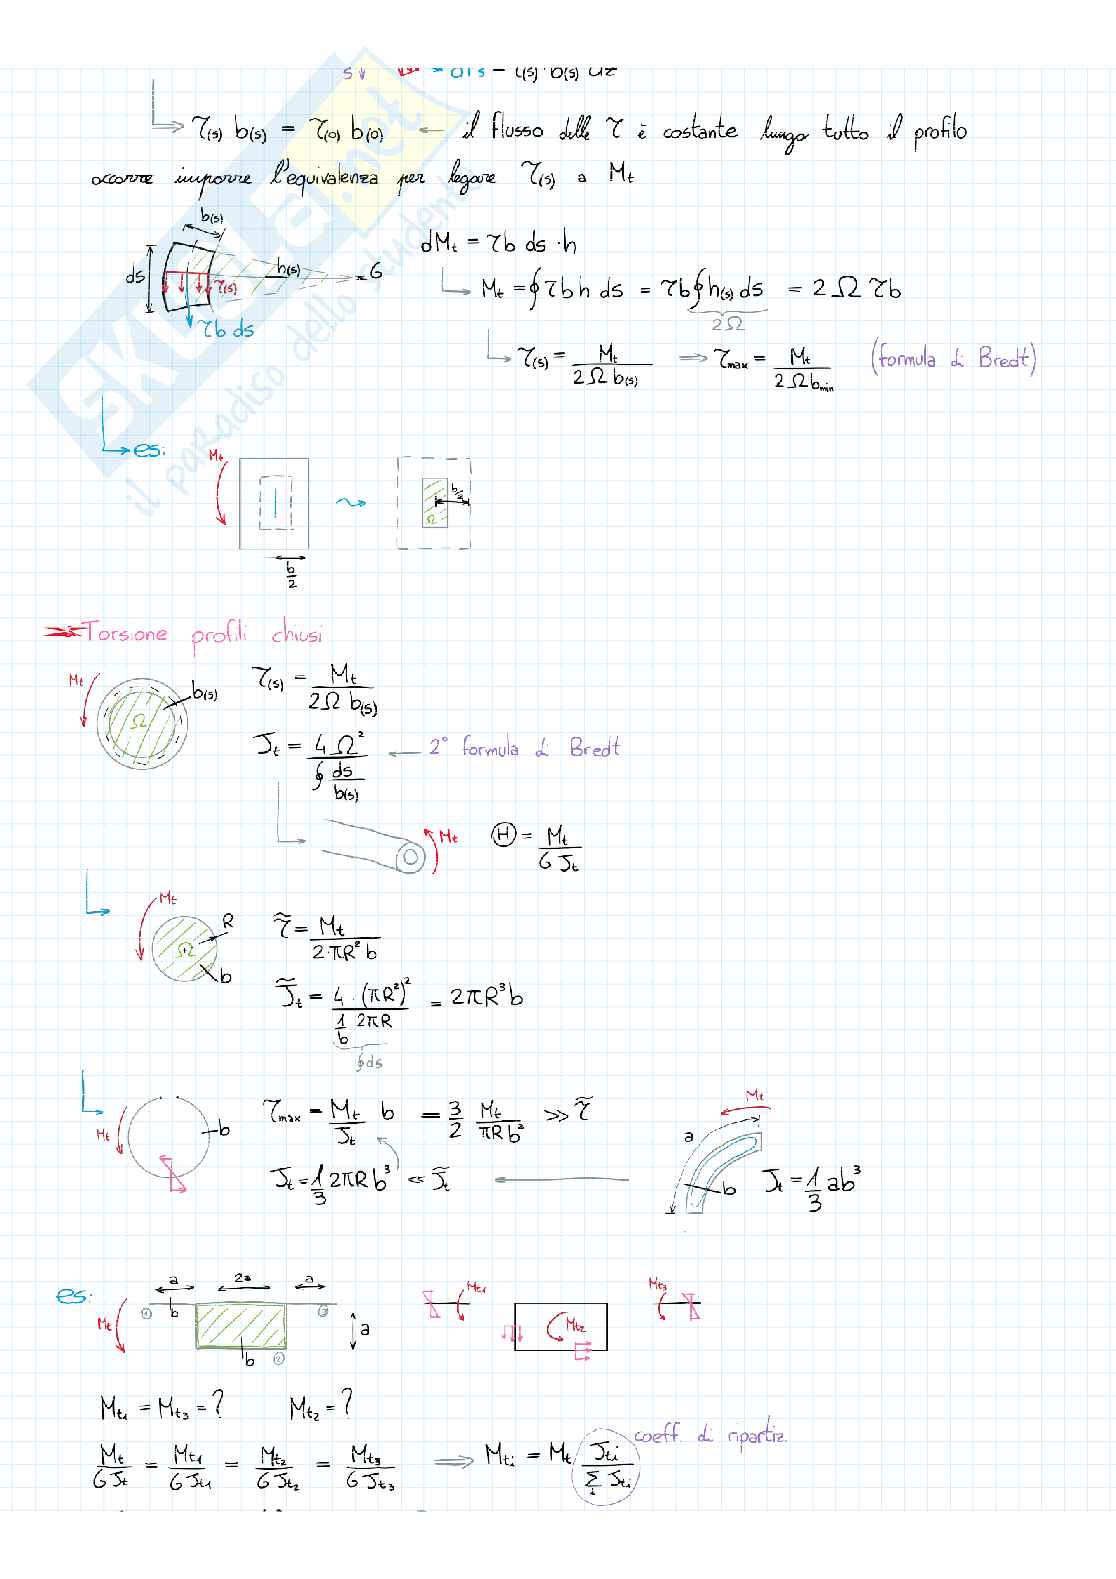 τ(s) b(s) = τ(0) b(0) ← il flusso delle τ è costante lungo tutto il profilo
occorre imporre l'equivalenza per legare τ(s) a Mt
b(s)
ds h(s) G
τ(s)
τb ds
dMt = τb ds · h
Mt = ∮τb h ds = τb∮h(s) ds = 2Ω τb
2Ω
τ(s) = Mt / 2Ω b(s) ⇒ τmax = Mt / 2Ω bmin (formula di Bredt)
es:
Mt
Ω b/2
b/2
Torsione profili chiusi
Mt Ω b(s)
τ(s) = Mt / 2Ω b(s)
Jt = 4Ω² / ∮ ds/b(s) ← 2° formula di Bredt
Mt Ⓗ = Mt / G Jt
Mt R Ω b
τ̃ = Mt / 2·πR² b
J̃t = 4·(πR²)² / 1/b 2πR = 2πR³b
∮ds
Mt b
τmax = Mt/Jt b = 3/2 Mt/πRb² >> τ̃
Jt = 1/3 2πRb³ << J̃t
Mt a b Jt = 1/3 ab³
es:
a 2a a
Mt ① b ③ a
b ②
Mt1 Mt2 Mt3
Mt1 = Mt3 = ? Mt2 = ?
Mt/GJt = Mt1/GJt1 = Mt2/GJt2 = Mt3/GJt3 ⇒ Mti = Mt Jti/Σi Jti coeff. di ripartiz.
SKUOLA.not
il paradiso dello studente